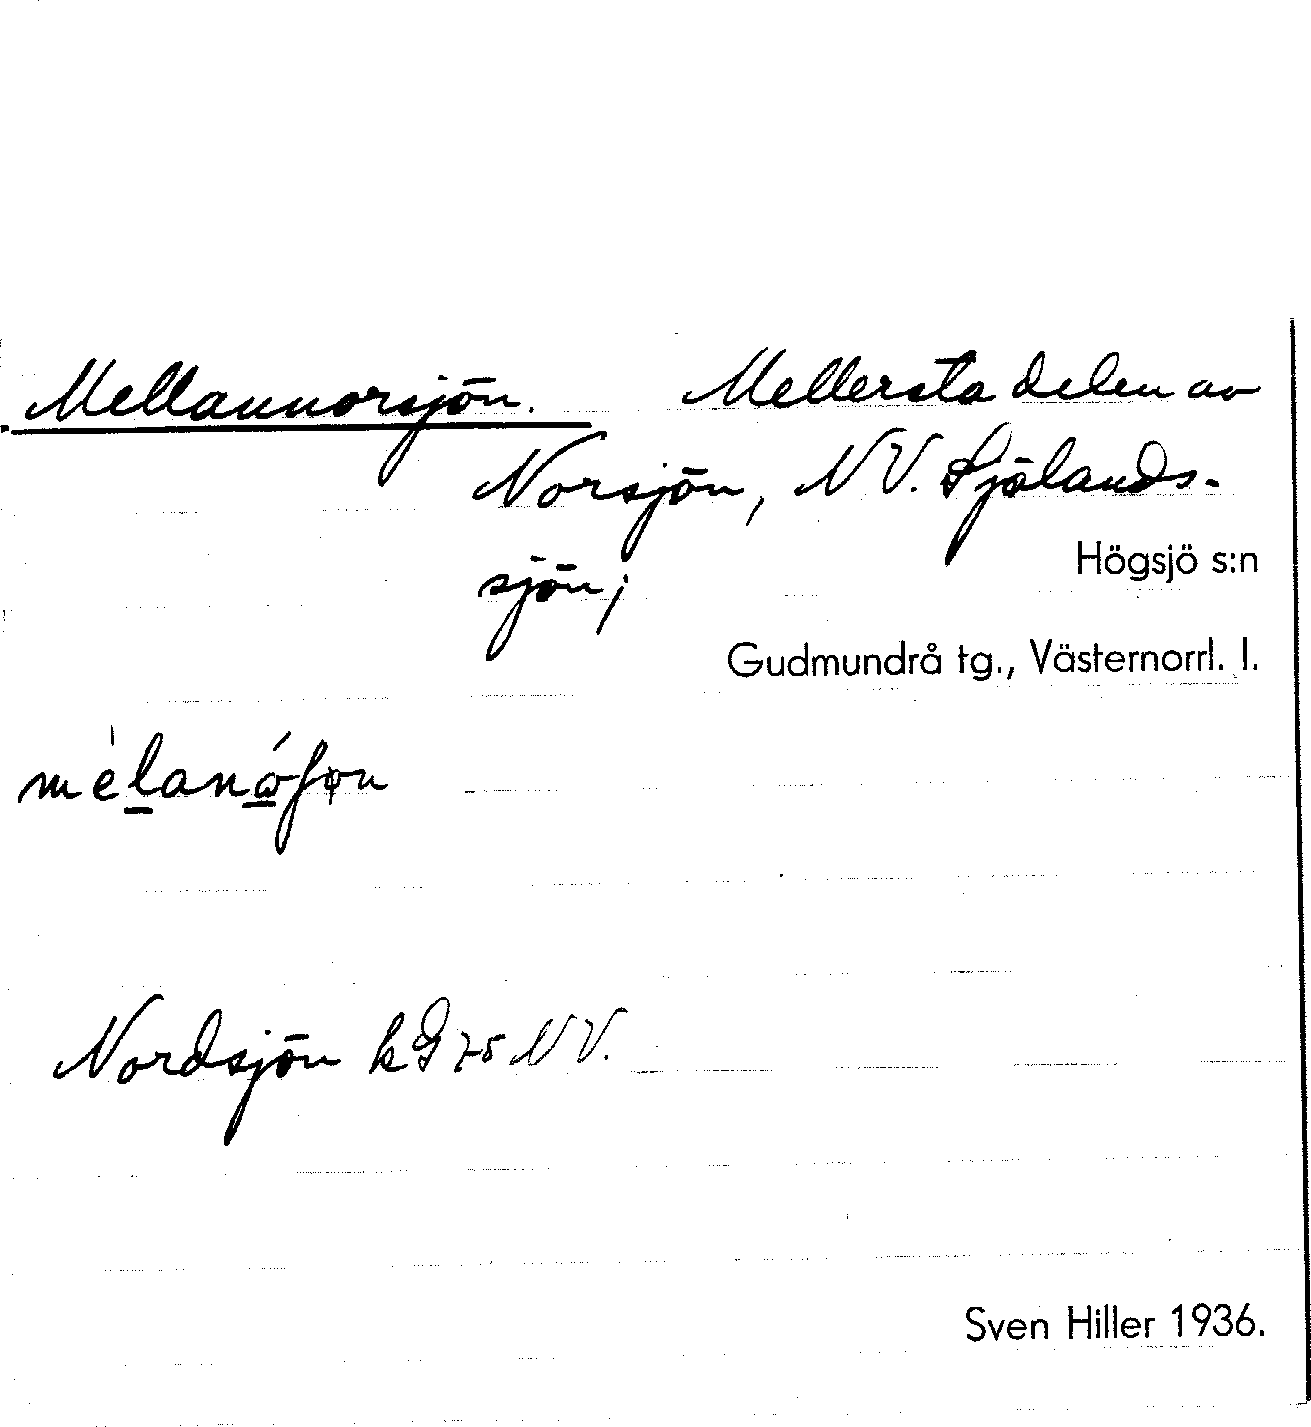 Mellannorsjön. Mellersta delen av
Norsjön, NV. Själands-
sjön;
Högsjö s:n
Gudmundrå tg., Västernorrl. l.
Nordsjön kG 75 NV.
Sven Hiller 1936.